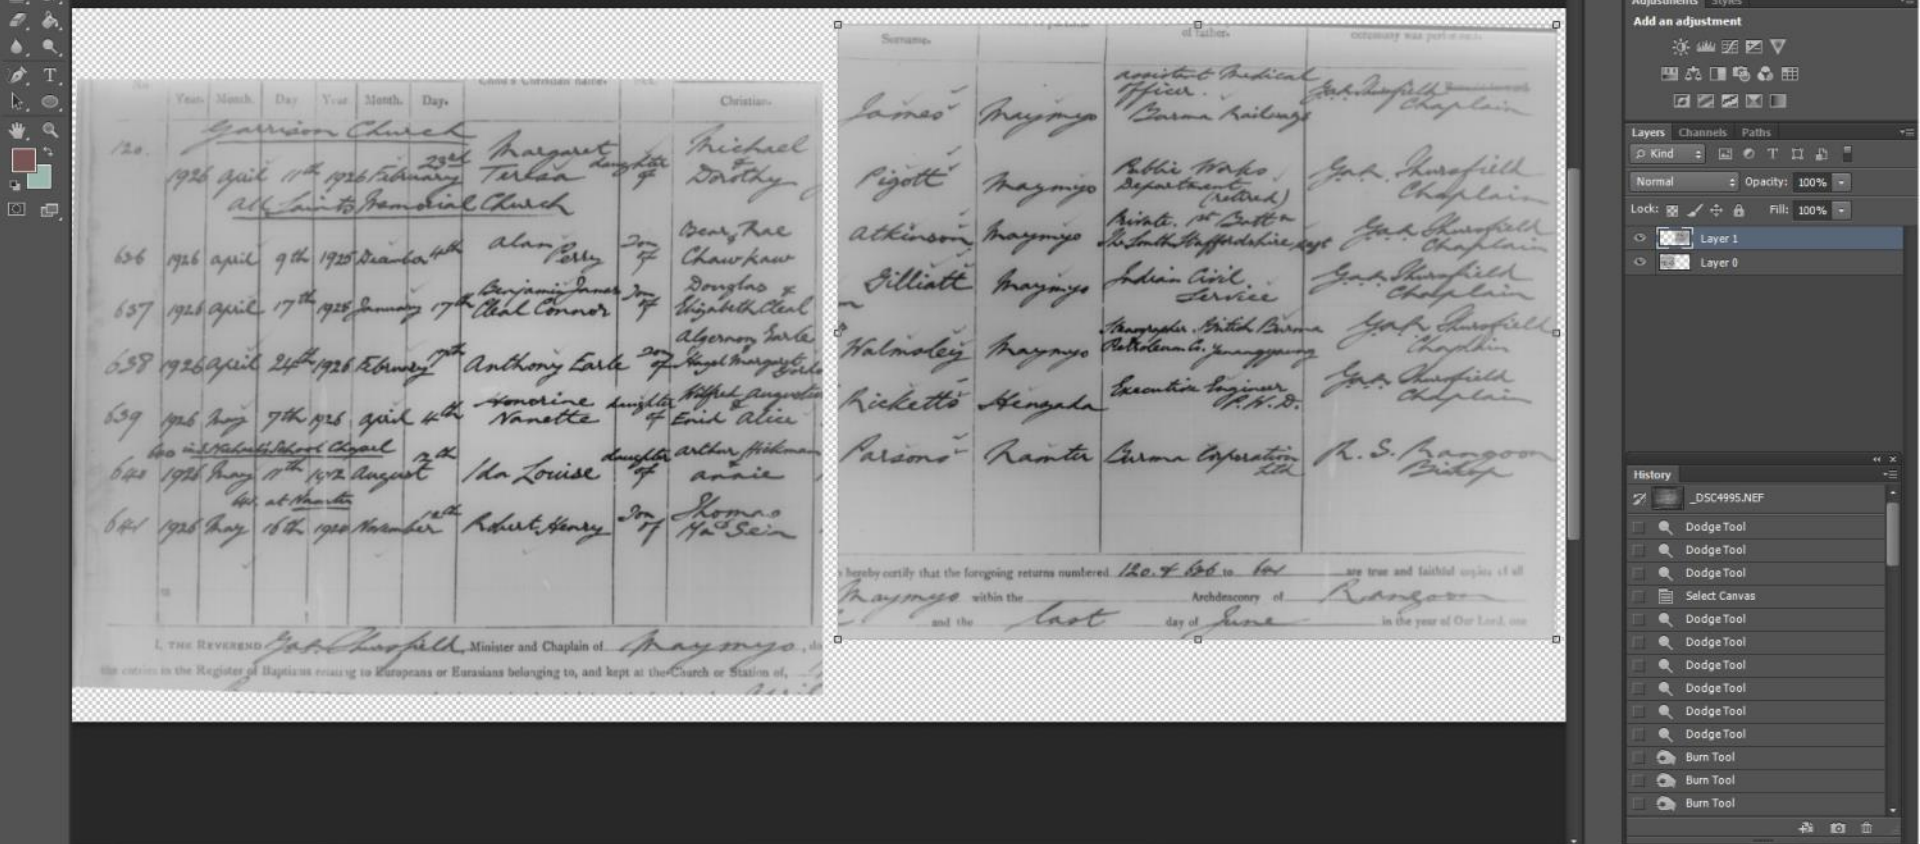 Year. Month. Day Year Month. Day. Christian.
Garrison Church
120. Margaret Michael
1926 April 11th 1926 February 23rd Teresa daughter of & Dorothy
All Saints Memorial Church
636 1926 April 9th 1925 December 4th Alan Perry Son of Chawkaw
637 1926 April 17th 1926 January 17th Benjamin James Cleal Connor Son of Douglas & Elizabeth Cleal
638 1926 April 24th 1926 February Anthony Earle Son of Algernon Earle Hazel Margaret
639 1926 May 7th 1926 April 4th Honorine Nanette daughter of Wilfred Augustin & Enid Alice
School Chapel
640 1926 May 11th August Ida Louise daughter of Arthur Hickman & Annie
at Namtu
641 1926 May 16th 1920 November Robert Henry Son of Thomas Ma Sein
I, THE REVEREND Minister and Chaplain of Maymyo
the entries in the Register of Baptisms relating to Europeans or Eurasians belonging to, and kept at the Church or Station of,
Surname. of father. ceremony was performed.
James Maymyo Assistant Medical Officer. Burma Railways Chaplain
Pigott Maymyo Public Works Department (retired) Chaplain
Atkinson Maymyo Private. 1st Battn The South Staffordshire Regt Chaplain
Gilliatt Maymyo Indian Civil Service Chaplain
Walmsley Maymyo Stenographer. British Burma Petroleum Co. Yenangyaung Chaplain
Ricketts Henzada Executive Engineer P.W.D. Chaplain
Parsons Namtu Burma Corporation Ltd R. S. Rangoon Bishop
hereby certify that the foregoing returns numbered 120. & 636 to 641 are true and faithful copies of all
Maymyo within the Archdeaconry of Rangoon
and the last day of June in the year of Our Lord, one
Adjustments Styles
Add an adjustment
Layers Channels Paths
Kind
Normal Opacity: 100%
Lock: Fill: 100%
Layer 1
Layer 0
History
_DSC4995.NEF
Dodge Tool
Dodge Tool
Dodge Tool
Select Canvas
Dodge Tool
Dodge Tool
Dodge Tool
Dodge Tool
Dodge Tool
Dodge Tool
Burn Tool
Burn Tool
Burn Tool